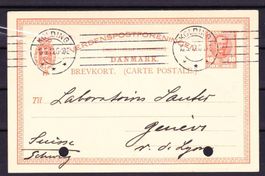 KOLDING
VERDENSPOSTFORENINGEN
DANMARK
BREVKORT. (CARTE POSTALE)
Til Laboratoires Sauter
Genève
r. d. Lyon
Suisse
Schweiz
10